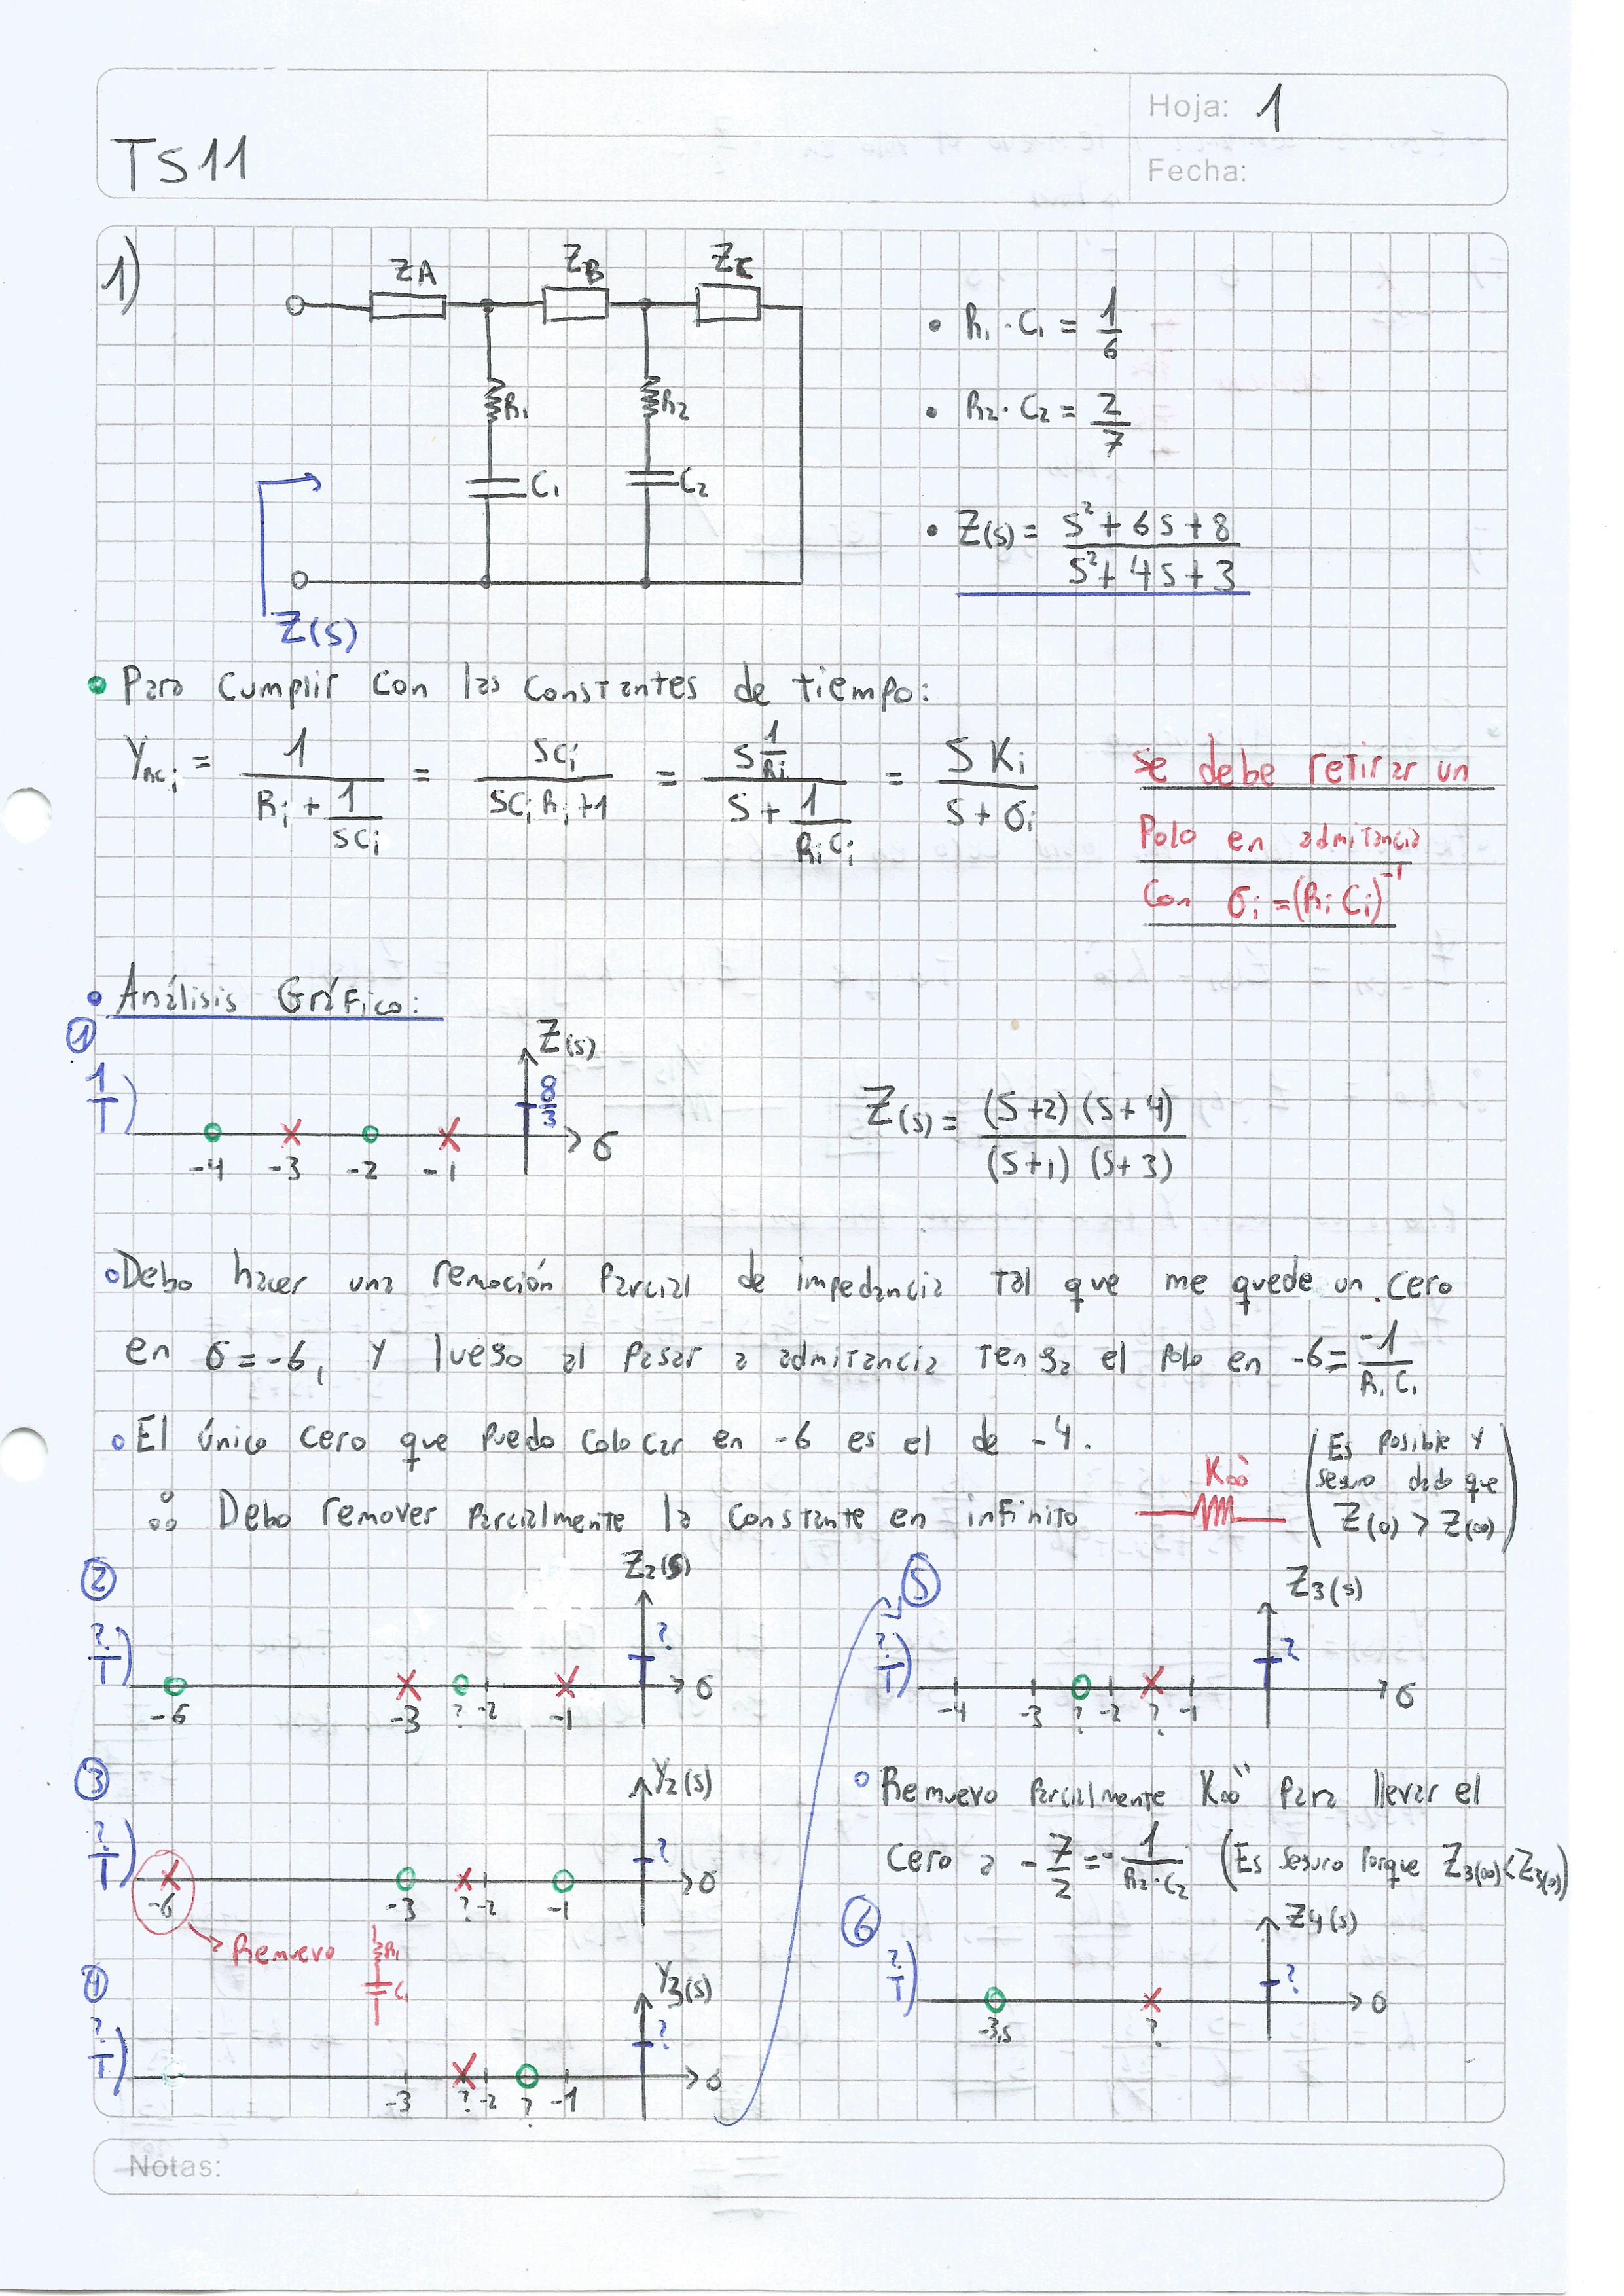 Hoja: 1
TS11
Fecha:
1)
ZA
ZB
ZC
R1
R2
C1
C2
Z(s)
• R1 . C1 = 1/6
• R2 . C2 = 2/7
• Z(s) = (s² + 6s + 8)/(s² + 4s + 3)
• Para cumplir con las constantes de tiempo:
YRCi = 1/(Ri + 1/(sCi)) = sCi/(sCiRi+1) = (s 1/Ri)/(s + 1/(RiCi)) = s Ki/(s + σi)
se debe retirar un
Polo en admitancia
con σi = (Ri Ci)⁻¹
• Análisis Gráfico:
①
1/T)
Z(s)
8/3
σ
-4 -3 -2 -1
Z(s) = (s+2)(s+4)/((s+1)(s+3))
◦ Debo hacer una remoción parcial de impedancia tal que me quede un cero
en σ = -6, y luego al pasar a admitancia tenga el polo en -6 = -1/(R1 C1)
◦ El único cero que puedo colocar en -6 es el de -4.
∴ Debo remover parcialmente la constante en infinito
K∞'
(Es posible y
seguro dado que
Z(0) > Z(∞))
②
?/T)
Z2(s)
?
σ
-6 -3 ? -2 -1
③
?/T)
Y2(s)
?
σ
-6 -3 ? -2 -1
Remuevo
R1
C1
④
?/T)
Y3(s)
?
σ
-3 ? -2 ? -1
⑤
?/T)
Z3(s)
?
σ
-4 -3 ? -2 ? -1
◦ Remuevo parcialmente K∞'' para llevar el
cero a -7/2 = -1/(R2.C2) (Es seguro porque Z3(∞)<Z3(0))
⑥
?/T)
Z4(s)
?
σ
-3,5 ?
Notas: